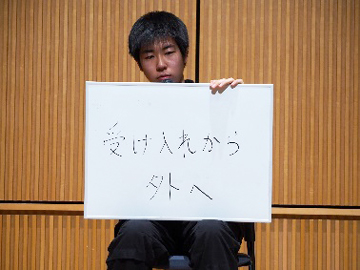 受け入れから
外へ